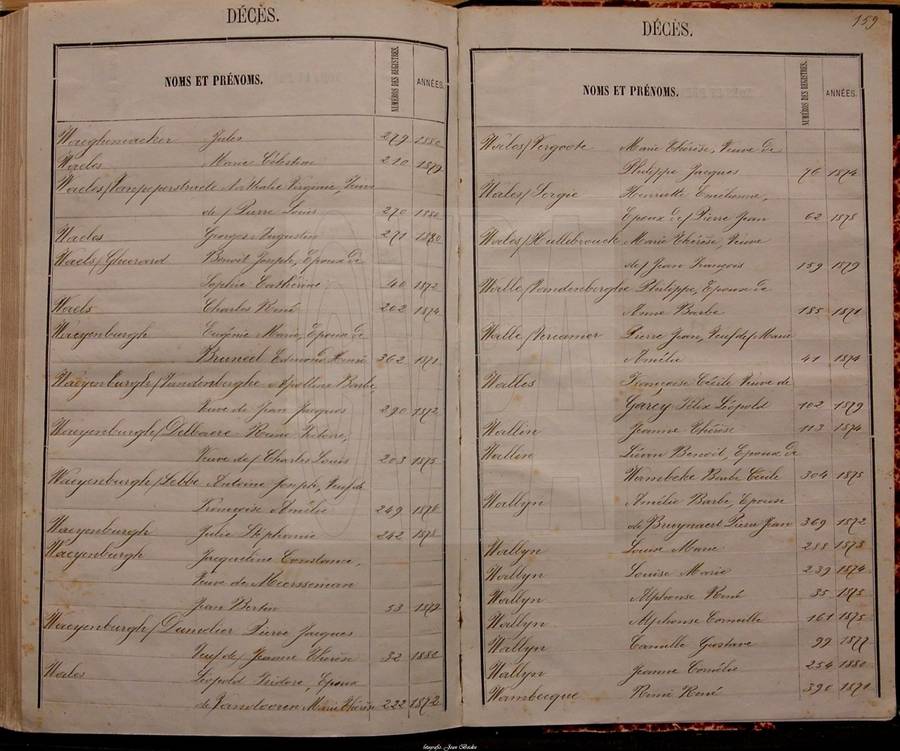 DÉCÈS.
NOMS ET PRÉNOMS. NUMÉROS DES REGISTRES. ANNÉES.
Waeghemacker Jules 279 1880
Waeles Marie Célestine 210 1879
Waeles/Vanpeperstraete Nathalie Virginie, Veuve
de/ Pierre Louis 270 1880
Waeles Georges Augustin 271 1880
Waels/Guerard Benoit Joseph, Epoux de
Sophie Cathérine 40 1872
Waels Charles René 262 1874
Waeyenburgh Eugénie Marie, Epouse de
Bruneel Edmond Henri 362 1871
Waeyenburgh/Vandenberghe Apolline Barbe,
Veuve de Jean Jacques 290 1872
Waeyenburgh/Delbaere Reine Victoire,
Veuve de/ Charles Louis 203 1875
Waeyenburgh/Lebbe Antoine Joseph, Veuf de
Françoise Amélie 249 1878
Waeyenburgh Julie Stéphanie 242 1878
Waeyenburgh Jacqueline Constance,
Veuve de Meersseman
Jean Bertin 53 1879
Waeyenburgh/ Pierre Jacques
Veuf de/ Jeanne Thérèse 32 1880
Wales Léopold Isidore, Epoux
de Marie Thérèse 222 1872
159
DÉCÈS.
NOMS ET PRÉNOMS. NUMÉROS DES REGISTRES. ANNÉES.
Wales/Vergote Marie Thérèse, Veuve de
Philippe Jacques 76 1874
Wales/ Henriette Emilienne,
Epouse de/ Pierre Jean 62 1878
Wales/Hullebrouck Marie Thérèse, Veuve
de/ Jean François 159 1879
Walle/Vandenberghe Philippe, Epoux de
Anne Barbe 185 1871
Walle/Vercamer Pierre Jean, Veuf de/ Marie
Amélie 41 1874
Walles Françoise Cécile Veuve de
Garcy Félix Léopold 102 1879
Wallin Jeanne Thérèse 113 1874
Wallin Liévin Benoit, Epoux de
Wambeke Barbe Cécile 304 1875
Wallyn Amélie Barbe, Epouse
de Bruynaert Pierre Jean 369 1872
Wallyn Louise Marie 288 1873
Wallyn Louise Marie 239 1874
Wallyn Alphonse René 35 1875
Wallyn Alphonse Corneille 161 1875
Wallyn Camille Gustave 99 1877
Wallyn Jeanne Cornélie 254 1880
Wambecque Remi René 390 1871